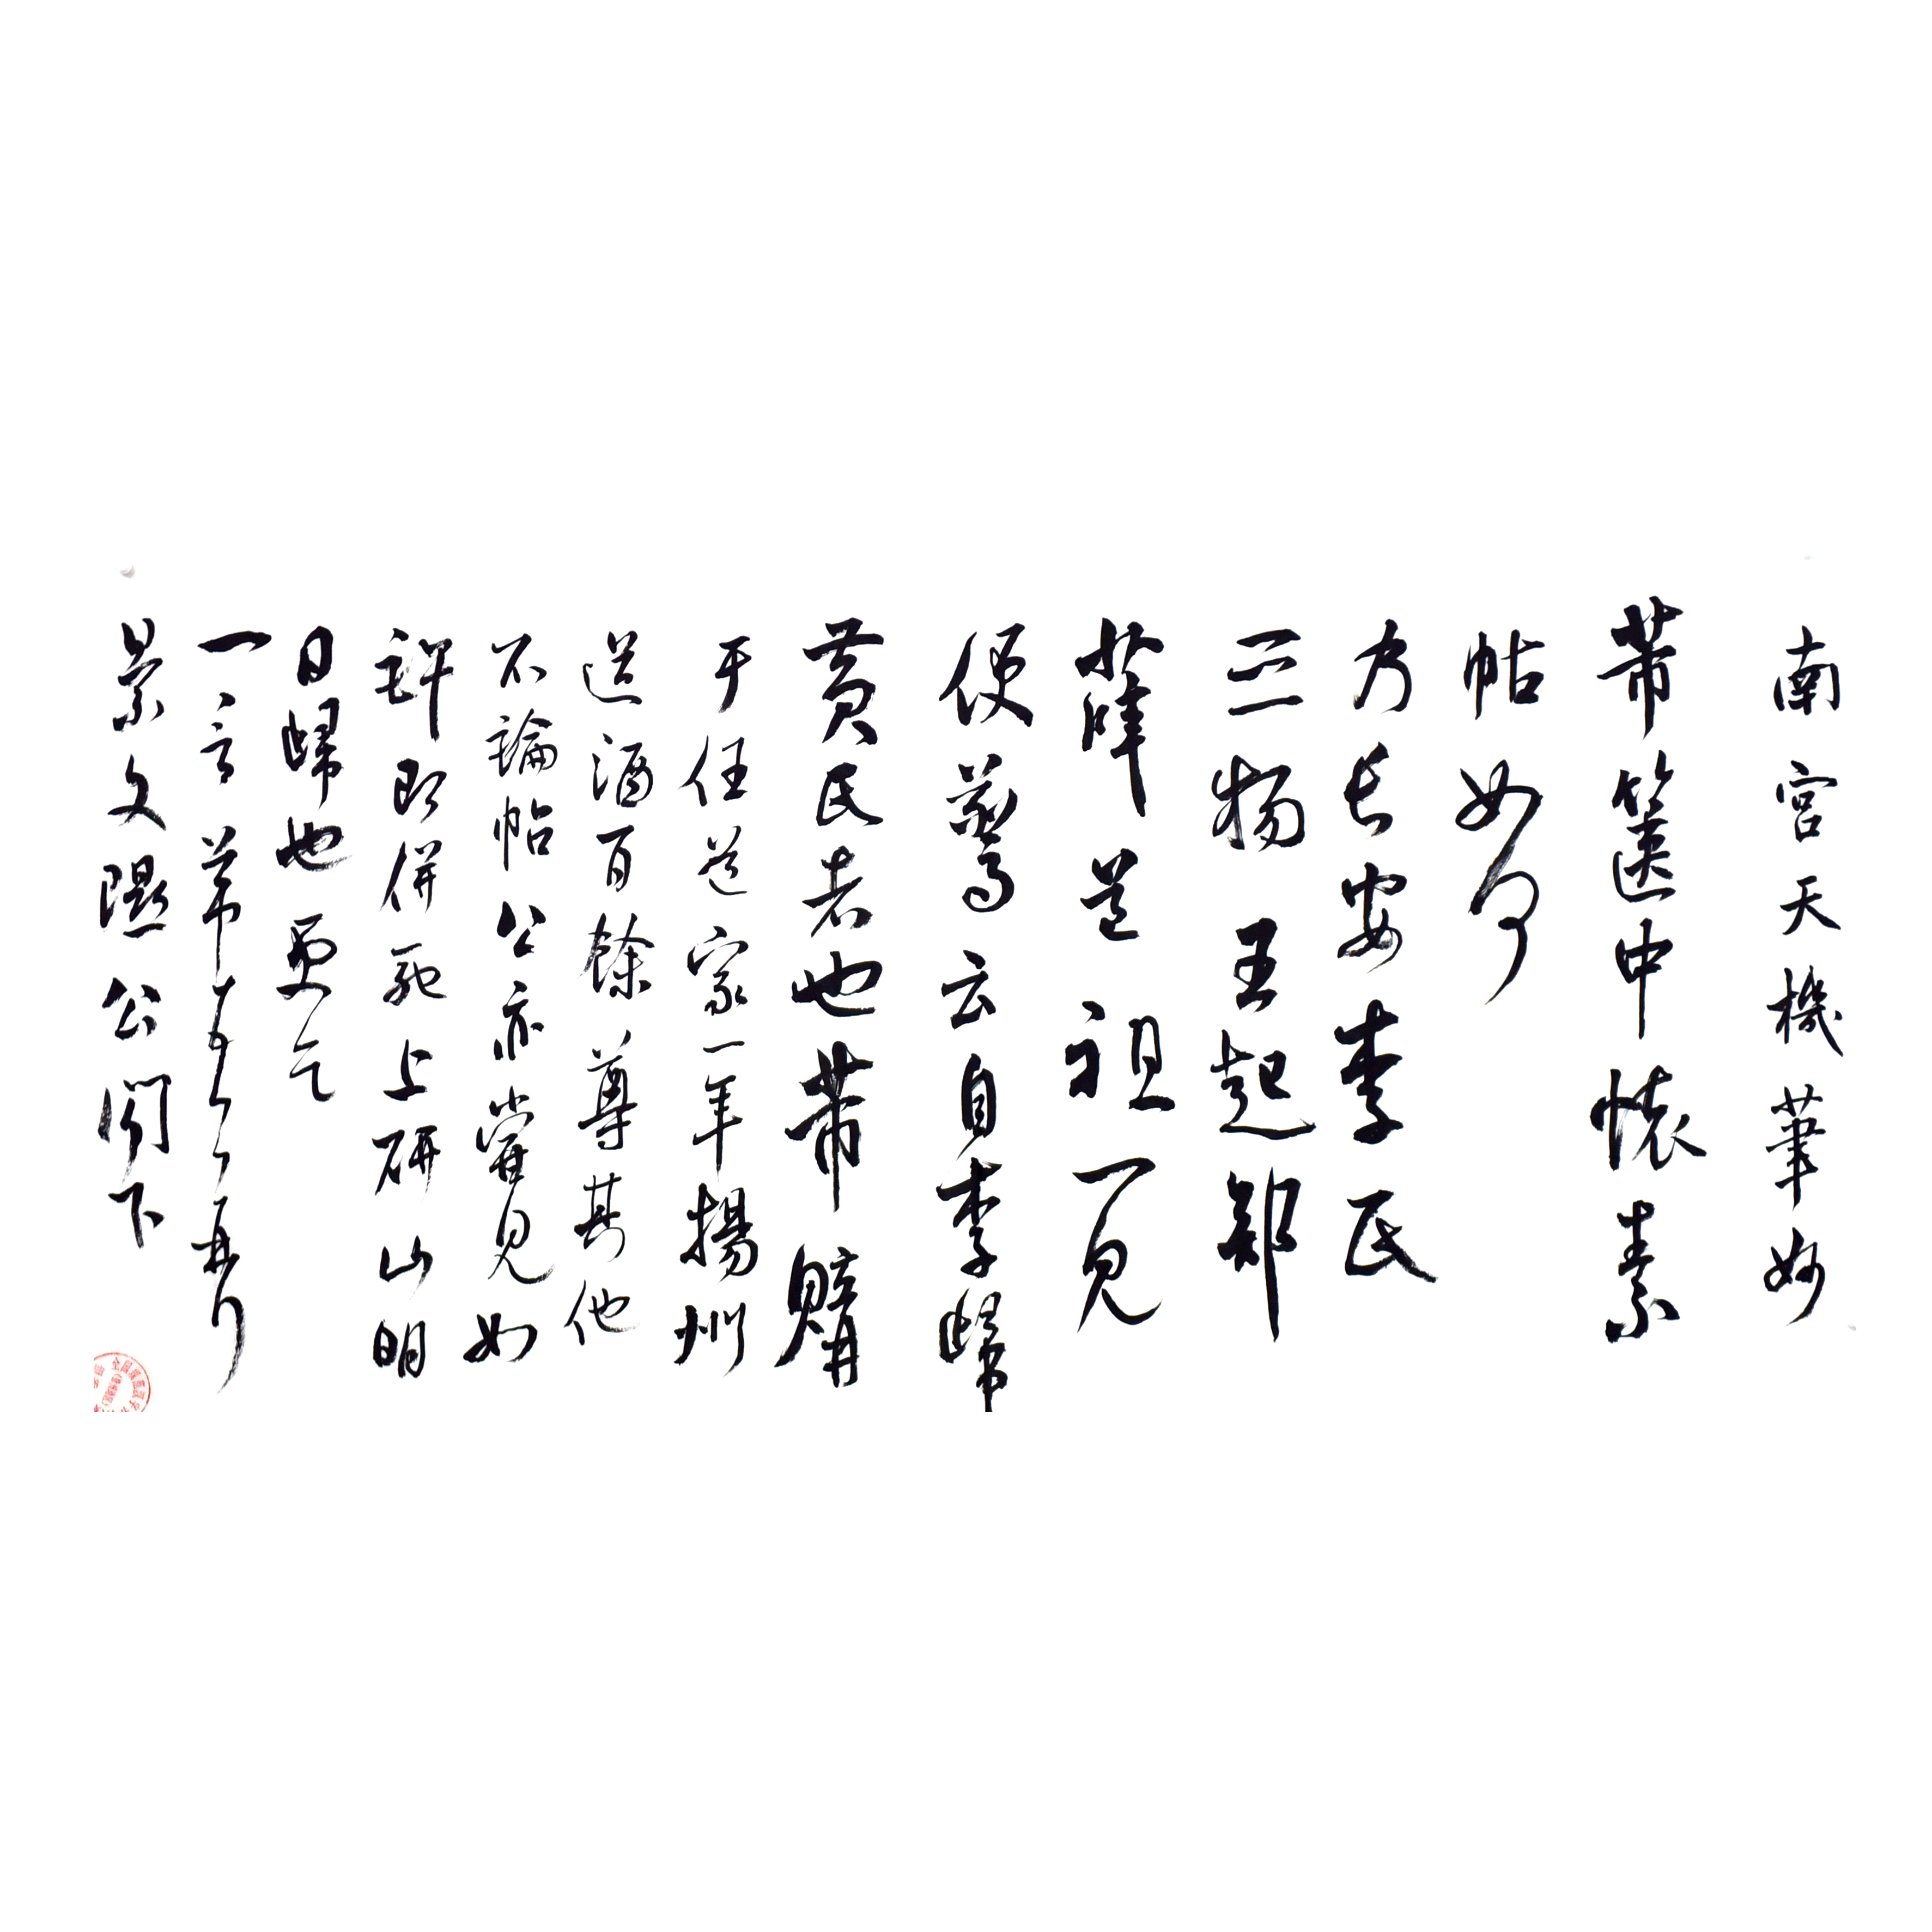 南宮天機筆妙
芾篋中懷素
帖如何
乃長安李氏
三物王起部
薛道祖一見
便驚云自李歸
黃氏者也芾購
于任道家一年揚州
送酒百餘尊其他
不論帖公亦嘗見如
許即併馳上研山明
日歸也更乞
一言芾頓首再拜
景文隰公閣下